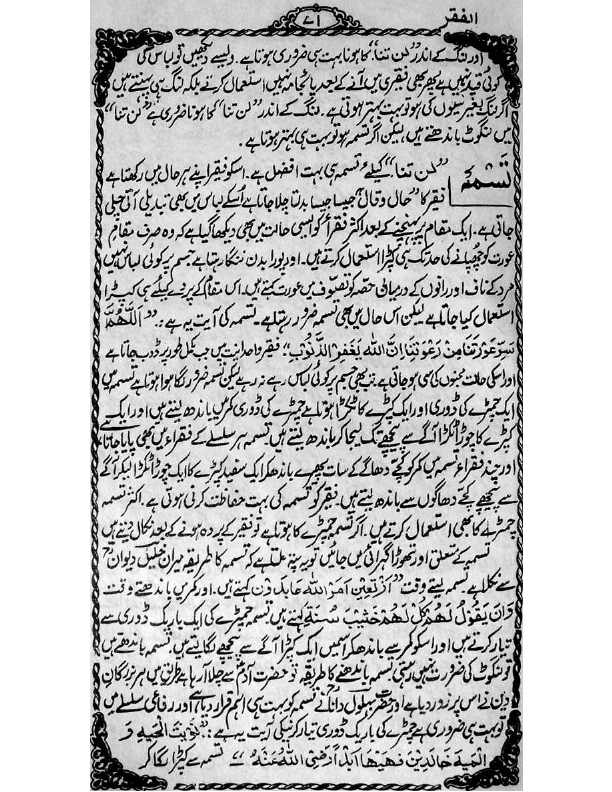 الفقر
۷۱
اور لنگ کے اندر "لن تنا" کا ہونا بہت ہی ضروری ہوتا ہے۔ ویسے دیکھیں تو لباس کی
کوئی قید نہیں ہے پھر بھی فقیری میں آنے کے بعد پائجامہ نہیں استعمال کرتے بلکہ لنگ ہی پہنتے ہیں
اگر لنگ بغیر سیون کی ہو تو بہت بہتر ہوتی ہے۔ لنگ کے اندر "لن تنا" کا ہونا ضروری ہے "لن تنا"
میں لنگوٹ باندھتے ہیں لیکن اگر تسمہ ہو تو بہت ہی بہتر ہوتا ہے۔
تسمہ
"لن تنا" کیلئے تسمہ ہی بہت افضل ہے۔ اسکو فقیر اپنے ہر حال میں رکھتا ہے
فقر کا "حال وقال" جیسا جیسا بدلتا چلا جاتا ہے اُسکے لباس میں بھی تبدیلی آتی چلی
جاتی ہے۔ ایک مقام پر پہنچنے کے بعد اکثر فقراء کو ایسی حالت میں بھی دیکھا گیا ہے کہ وہ صرف مقامِ
عورت کو چھپانے کی حد تک ہی کپڑا استعمال کرتے ہیں۔ اور پورا بدن ننگا رہتا ہے جسم پر کوئی لباس نہیں
مرد کے ناف اور رانوں کے درمیانی حصّہ کو تصوّف میں عورت کہتے ہیں۔ اس مقام کے پردے کیلئے ہی کپڑا
استعمال کیا جاتا ہے لیکن اس حال میں بھی تسمہ ضرور رہتا ہے۔ تسمہ کی آیت یہ ہے:۔ "اَللّٰهُمَّ
الله يَغْفِرُ الذُّنُوْبُ"۔ فقیر واحدانیت میں جب مکمل طور پر ڈوب جاتا ہے
اور اسکی حالت مجنوں کی سی ہو جاتی ہے تب بھی جسم پر کوئی لباس رہے نہ رہے لیکن تسمہ ضرور لگا ہوا ہوتا ہے تسمہ میں
ایک چمڑے کی ڈوری اور ایک کپڑے کا ٹکڑا ہوتا ہے چمڑے کی ڈوری کمر میں باندھ لیتے ہیں اور ایک
کپڑے کا چوڑا ٹکڑا آگے سے پیچھے تک لیجا کر باندھ لیتے ہیں تسمہ ہر سلسلے کے فقراء میں بھی پایا جاتا ہے
اور چند فقراء تسمہ میں کمر کو کچے دھاگے کے سات پھیرے باندھکر ایک سفید کپڑے کا ایک چوڑا ٹکڑا لیکر آگے
سے پیچھے کچے دھاگوں سے باندھ لیتے ہیں۔ فقیر کو تسمہ کی بہت حفاظت کرنی ہوتی ہے۔ اکثر تسمہ
چمڑے کا بھی استعمال کرتے ہیں۔ اگر تسمہ چمڑے کا ہوتا ہے تو فقیر کے پردہ ہونے کے بعد نکال دیتے ہیں
تسمہ کے متعلق اور تھوڑا گہرائی میں جائیں تو یہ پتہ چلتا ہے کہ تسمہ کا طریقہ میران خلیل دیوانؒ
سے نکلا ہے۔ تسمہ لیتے وقت "اربعین امر الله عابدون کہتے ہیں۔ اور کمر میں باندھتے وقت
وَان يَقُوْلُ لَهُمْ كُلّ لَهُمْ سُنَةً کہتے ہیں۔ تسمہ چمڑے کی ایک باریک ڈوری سے
تیار کرتے ہیں اور اسکو کمر سے باندھکر اسمیں ایک کپڑا آگے سے پیچھے لگا لیتے ہیں۔ تسمہ باندھتے ہیں
تو لنگوٹ کی ضرورت نہیں ہستی تسمہ باندھنے کا طریقہ تو حضرت آدمؑ سے چلا آ رہا ہے ہر بزرگانِ
دین نے اس پر زور دیا ہے اور حضرت بہلول داناؒ نے تسمہ کو بہت ہی اہم قرار دیا ہے اور رفاعی سلسلے میں
تو بہت ہی ضروری ہے چمڑے کی باریک ڈوری تیار کرنیکی نیت یہ ہے:۔ الحيه و
الميه خالدين فهيها ابدا رضى الله عنه" تسمہ سے کپڑا لگا کر